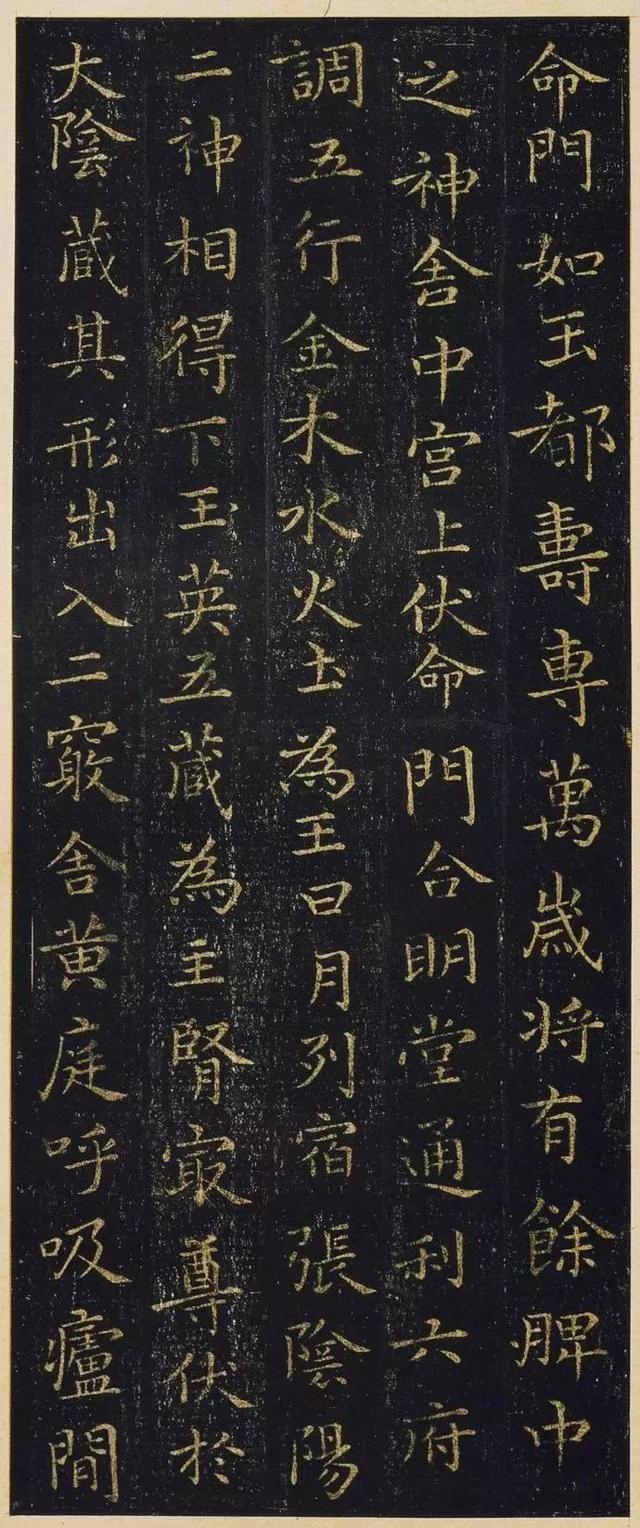 命門如玉都壽専萬歳将有餘脾中
之神舍中宮上伏命門合明堂通利六府
調五行金木水火土為王日月列宿張陰陽
二神相得下玉英五蔵為主腎㝡尊伏於
大陰蔵其形出入二竅舍黄庭呼吸廬間